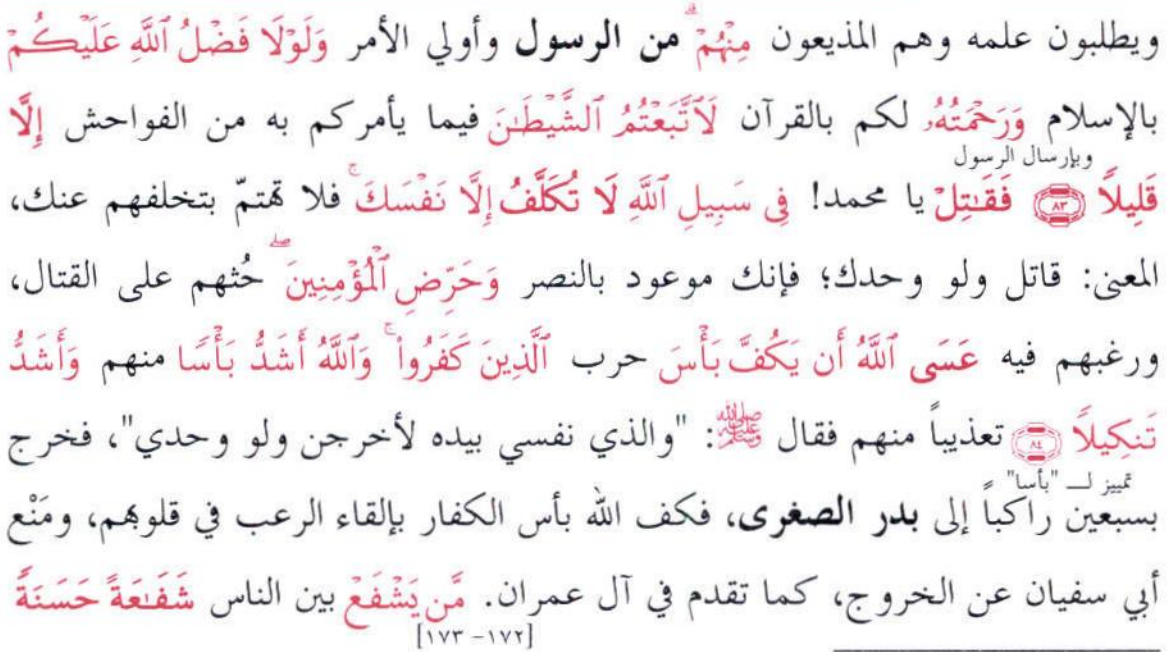 ويطلبون علمه وهم المذيعون مِنْهُمْ ۗ من الرسول وأولي الأمر وَلَوْلَا فَضْلُ ٱللَّهِ عَلَيْكُمْ
بالإسلام وَرَحْمَتُهُۥ لكم بالقرآن لَٱتَّبَعْتُمُ ٱلشَّيْطَـٰنَ فيما يأمركم به من الفواحش إِلَّا
وبإرسال الرسول
قَلِيلًا ﴿٨٣﴾ فَقَـٰتِلْ يا محمد! فِى سَبِيلِ ٱللَّهِ لَا تُكَلَّفُ إِلَّا نَفْسَكَ ۚ فلا تهتمّ بتخلفهم عنك،
المعنى: قاتل ولو وحدك؛ فإنك موعود بالنصر وَحَرِّضِ ٱلْمُؤْمِنِينَ ۖ حُثهم على القتال،
ورغبهم فيه عَسَى ٱللَّهُ أَن يَكُفَّ بَأْسَ حرب ٱلَّذِينَ كَفَرُوا۟ ۚ وَٱللَّهُ أَشَدُّ بَأْسًا منهم وَأَشَدُّ
تَنكِيلًا ﴿٨٤﴾ تعذيباً منهم فقال ﷺ: "والذي نفسي بيده لأخرجن ولو وحدي"، فخرج
تمييز لـ "بأسا"
بسبعين راكباً إلى بدر الصغرى، فكف الله بأس الكفار بإلقاء الرعب في قلوبهم، ومَنْع
أبي سفيان عن الخروج، كما تقدم في آل عمران. مَّن يَشْفَعْ بين الناس شَفَـٰعَةً حَسَنَةً
[١٧٢- ١٧٣]